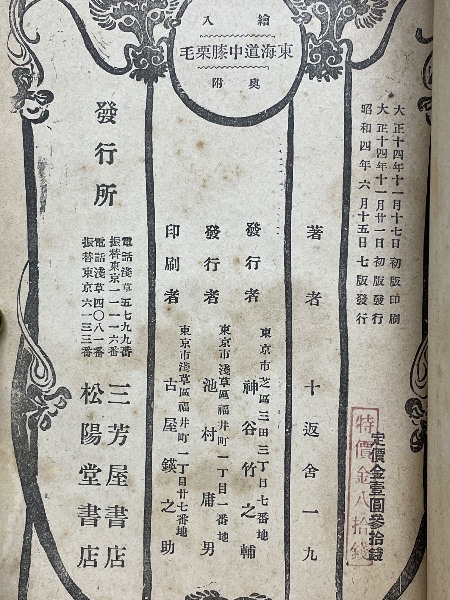 繪入
東海道中膝栗毛
奥附
大正十四年十一月十七日初版印刷
大正十四年十一月廿一日初版發行
昭和四年六月十五日七版發行
定價金壹圓參拾錢
特價金八拾錢
著者 十返舍一九
東京市芝區三田三丁目七番地
發行者 神谷竹之輔
東京市淺草區福井町一丁目一番地
發行者 池村庸男
東京市淺草區福井町一丁目廿七番地
印刷者 古屋鍈之助
發行所
電話淺草五七九九番
振替東京一一一六番
三芳屋書店
電話淺草四〇八一番
振替東京六一三三番
松陽堂書店